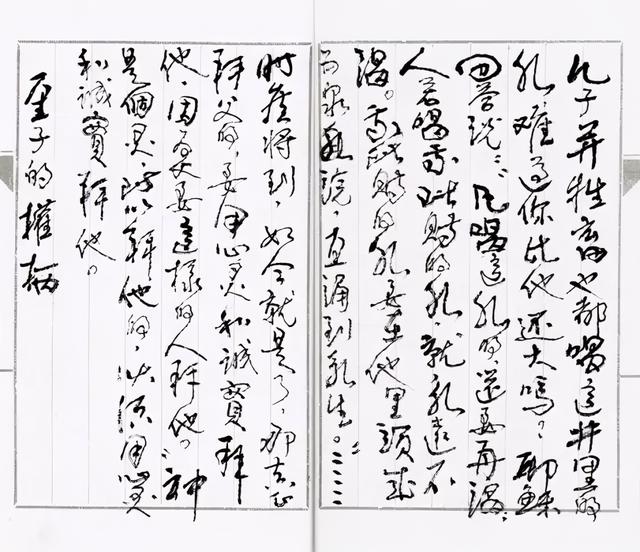 儿子并牲畜也都喝這井里的
水,难道你比他还大嗎?耶穌
回答说:"凡喝這水的,还要再渴;
人若喝我所赐的水,就永遠不
渴。我所赐的水要在他里頭成
为泉源,直涌到永生。"……
时候将到,如今就是了,那真正
拜父的,要用心灵和诚實拜
他,因为父要這樣的人拜他。"神
是個灵,所以拜他的,必须用心灵
和诚實拜他。
圣子的權柄